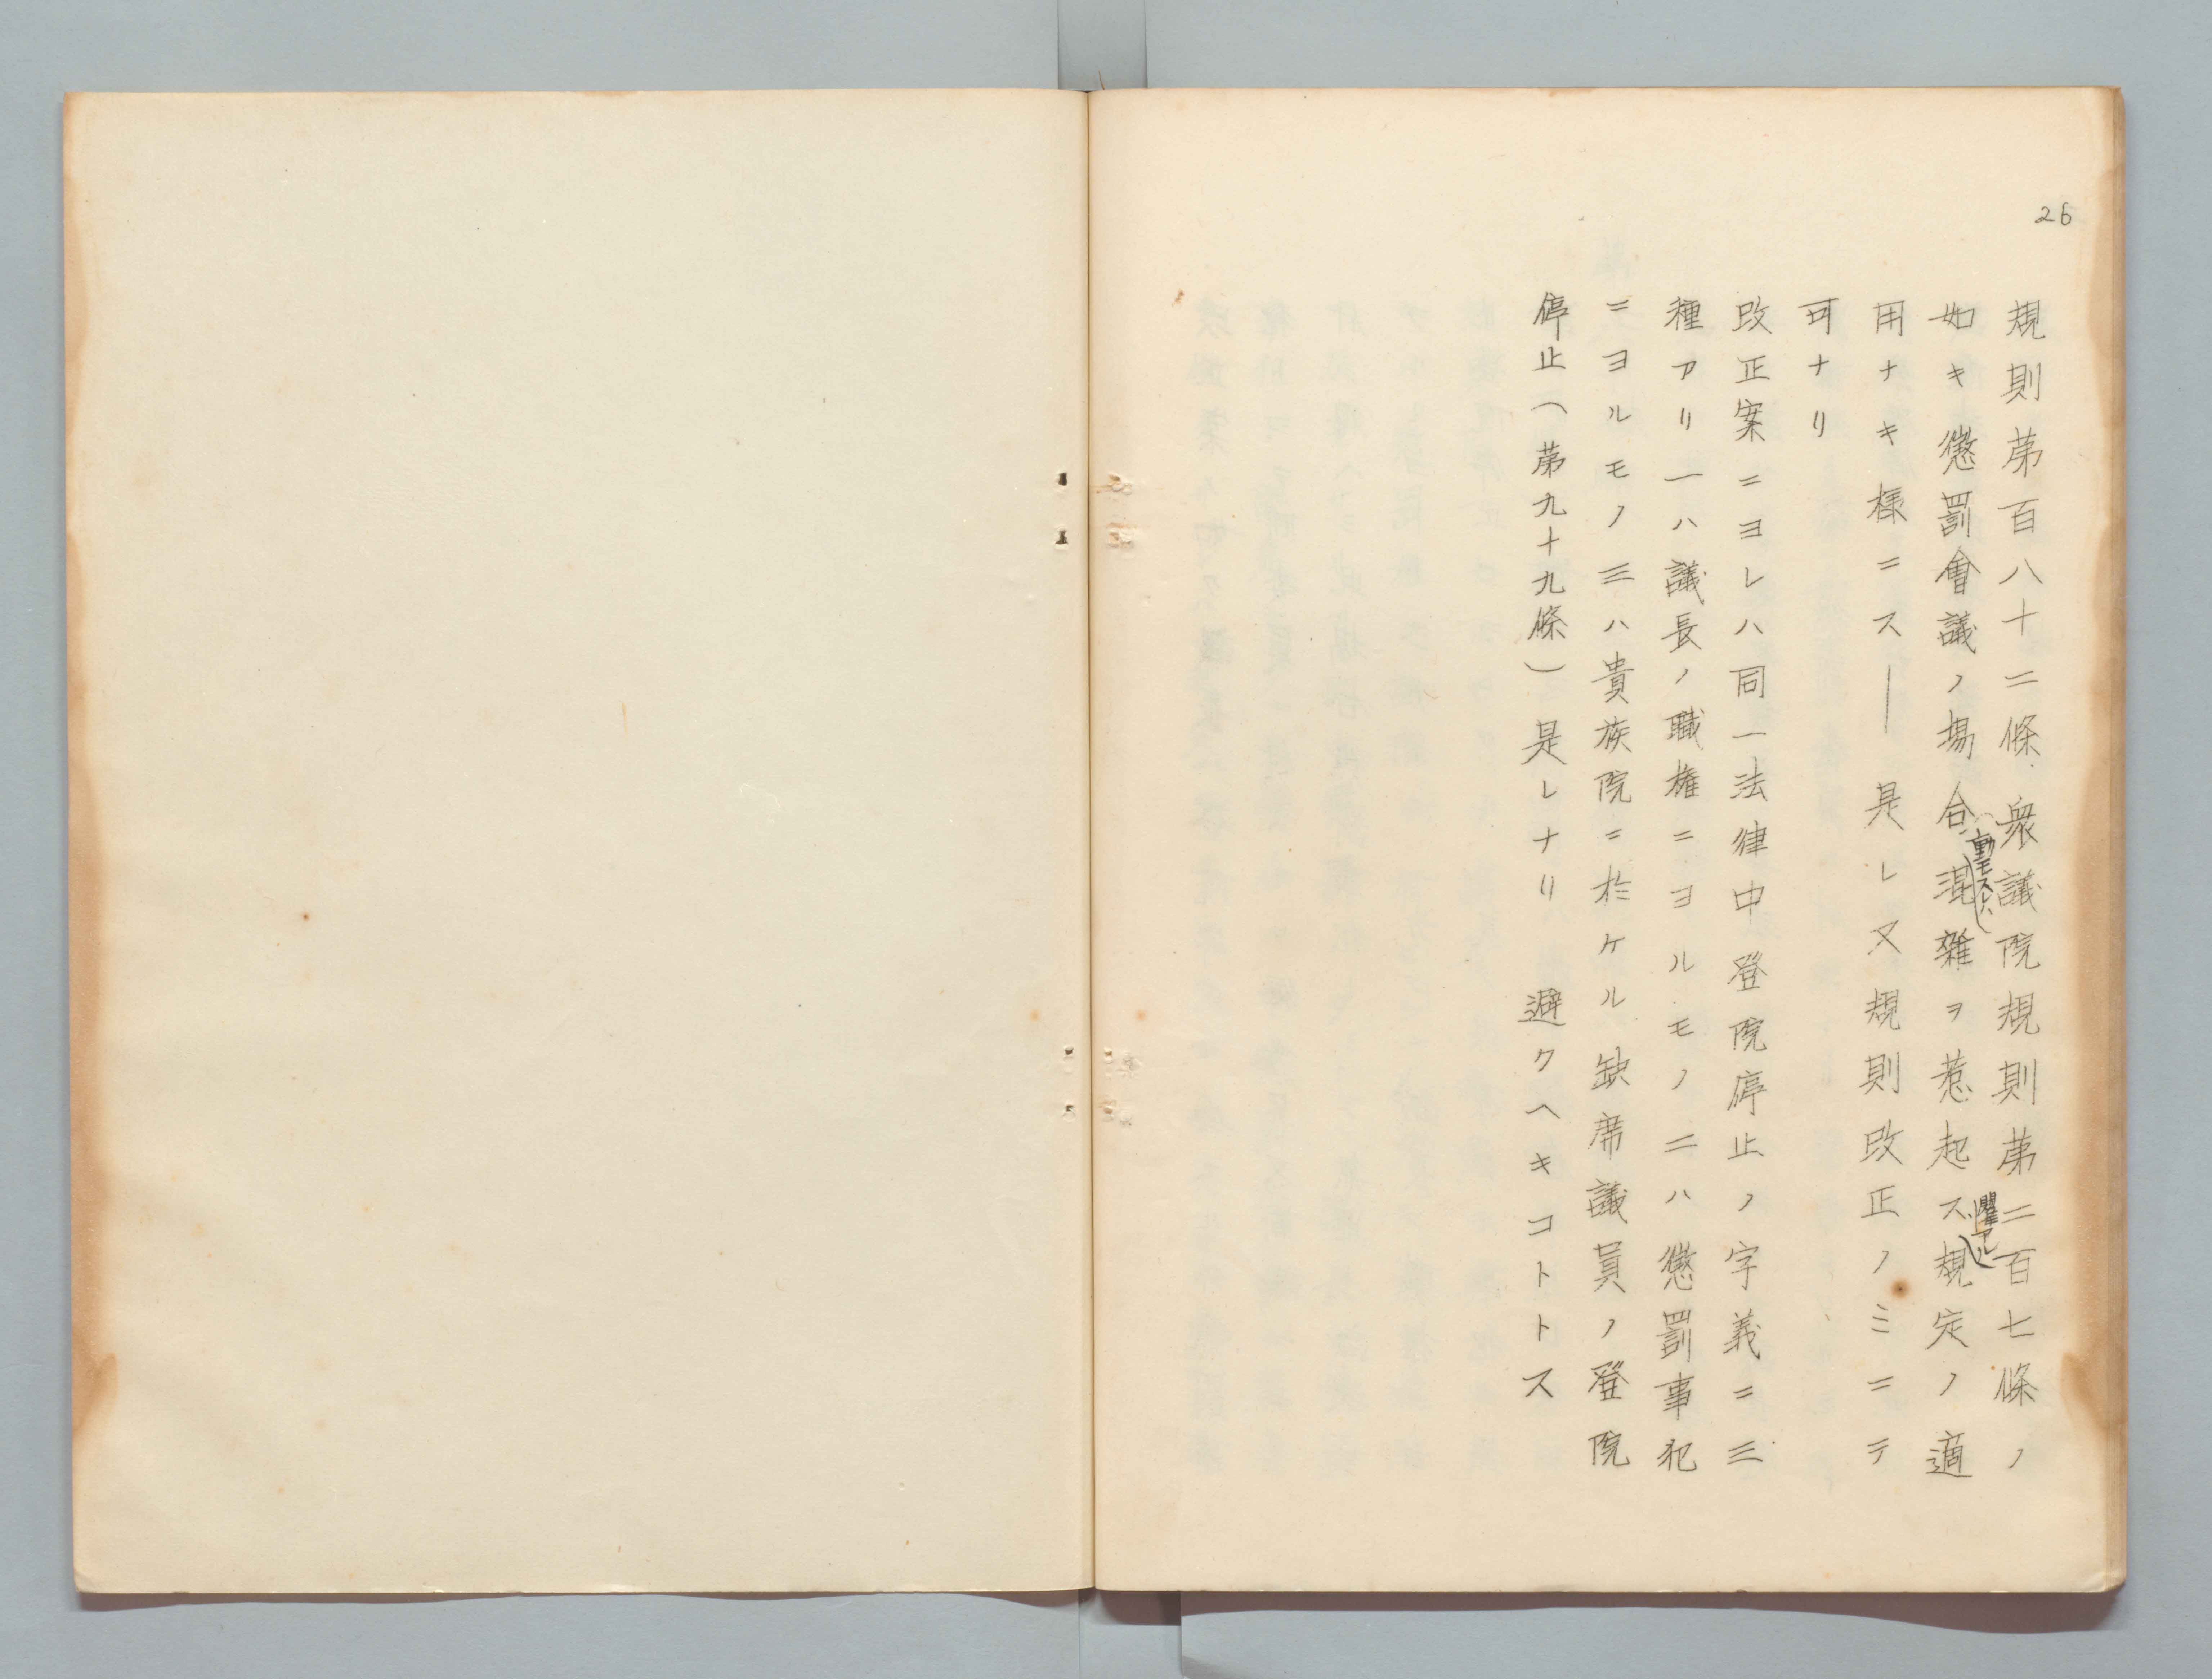 26
規則第百八十二條衆議院規則第二百七條ノ
如キ懲罰會議ノ場合動モスレハ混雜ヲ惹起ス懼アル規定ノ適
用ナキ樣ニス―是レ又規則改正ノミニテ
可ナリ
改正案ニヨレハ同一法律中登院停止ノ字義ニ三
種アリ一ハ議長ノ職權ニヨルモノ二ハ懲罰事犯
ニヨルモノ三ハ貴族院ニ於ケル缺席議員ノ登院
停止(第九十九條)是レナリ 避クヘキコトトス